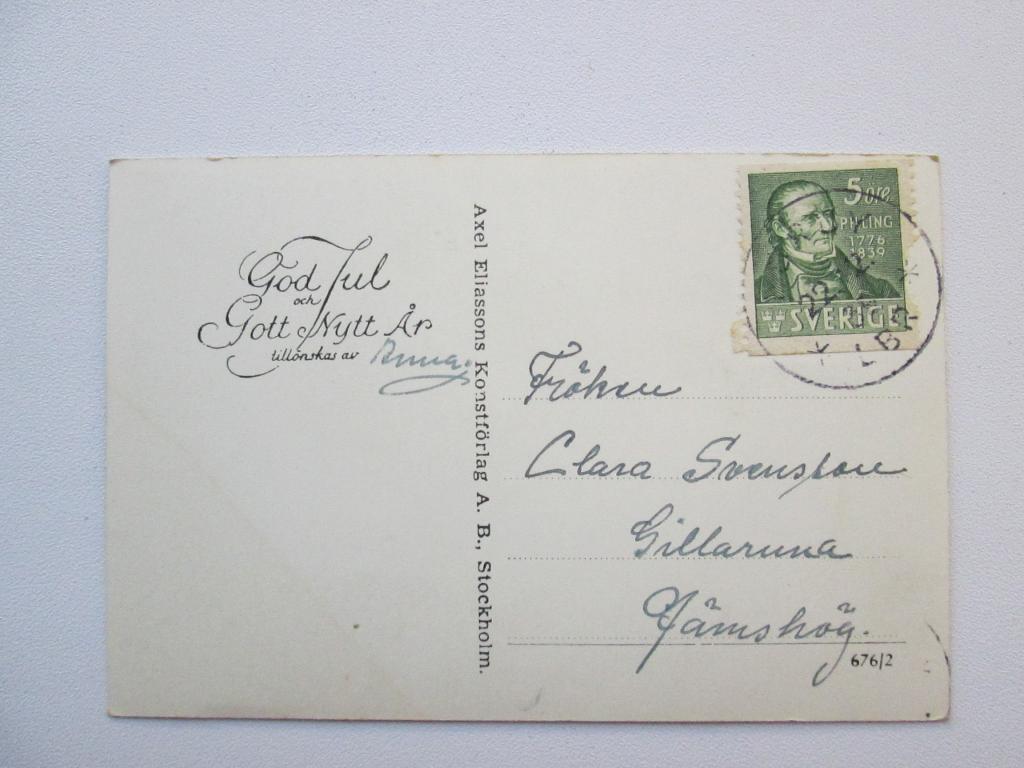 God Jul
och
Gott Nytt År
tillönskas av Anna
Axel Eliassons Konstförlag A. B., Stockholm.
5 öre
PH LING
1776
1839
SVERIGE
22 12
Fröken
Clara Svensson
Gillaruna
Jämshög.
676/2